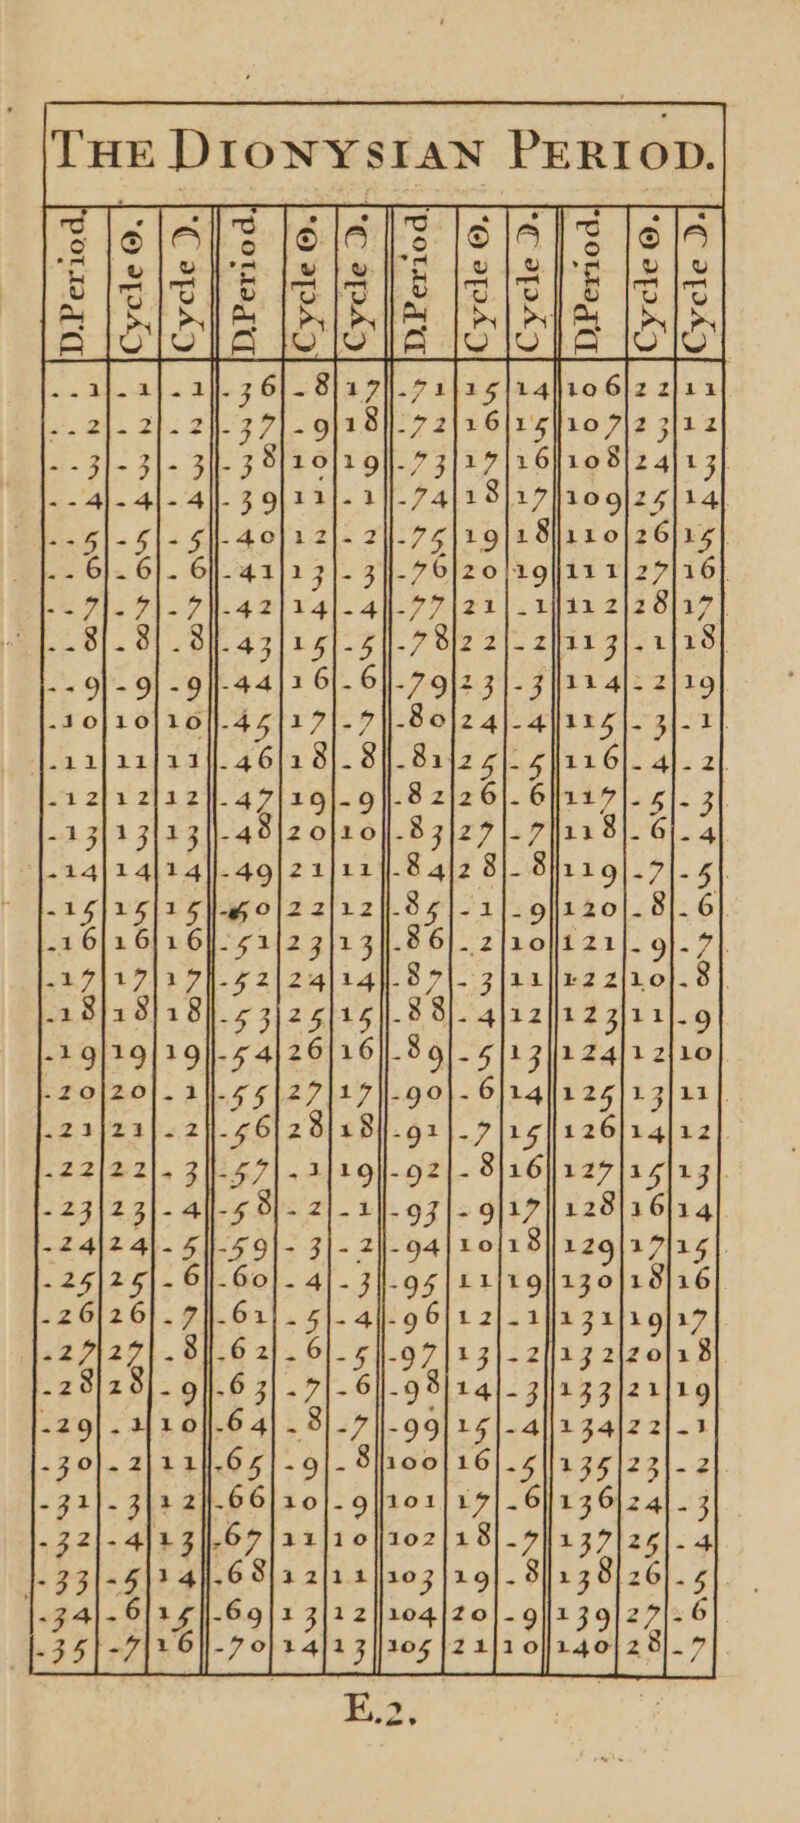 THE DIONYSIAN PERIOD.
D.Period. Cycle ☉. Cycle ☽. D.Period. Cycle ☉. Cycle ☽. D.Period. Cycle ☉. Cycle ☽. D.Period. Cycle ☉. Cycle ☽.
..1 .1 .1 .36 .8 17 .71 15 14 106 22 11
..2 .2 .2 .37 .9 18 .72 16 15 107 23 12
..3 .3 .3 .38 10 19 .73 17 16 108 24 13
..4 .4 .4 .39 11 .1 .74 18 17 109 25 14
..5 .5 .5 .40 12 .2 .75 19 18 110 26 15
..6 .6 .6 .41 13 .3 .76 20 19 111 27 16
..7 .7 .7 .42 14 .4 .77 21 .1 112 28 17
..8 .8 .8 .43 15 .5 .78 22 .2 113 .1 18
..9 .9 .9 .44 16 .6 .79 23 .3 114 .2 19
.10 10 10 .45 17 .7 .80 24 .4 115 .3 .1
.11 11 11 .46 18 .8 .81 25 .5 116 .4 .2
.12 12 12 .47 19 .9 .82 26 .6 117 .5 .3
.13 13 13 .48 20 10 .83 27 .7 118 .6 .4
.14 14 14 .49 21 11 .84 28 .8 119 .7 .5
.15 15 15 .50 22 12 .85 .1 .9 120 .8 .6
.16 16 16 .51 23 13 .86 .2 10 121 .9 .7
.17 17 17 .52 24 14 .87 .3 11 122 10 .8
.18 18 18 .53 25 15 .88 .4 12 123 11 .9
.19 19 19 .54 26 16 .89 .5 13 124 12 10
.20 20 .1 .55 27 17 .90 .6 14 125 13 11
.21 21 .2 .56 28 18 .91 .7 15 126 14 12
.22 22 .3 .57 .1 19 .92 .8 16 127 15 13
.23 23 .4 .58 .2 .1 .93 .9 17 128 16 14
.24 24 .5 .59 .3 .2 .94 10 18 129 17 15
.25 25 .6 .60 .4 .3 .95 11 19 130 18 16
.26 26 .7 .61 .5 .4 .96 12 .1 131 19 17
.27 27 .8 .62 .6 .5 .97 13 .2 132 20 18
.28 28 .9 .63 .7 .6 .98 14 .3 133 21 19
.29 .1 10 .64 .8 .7 .99 15 .4 134 22 .1
.30 .2 11 .65 .9 .8 100 16 .5 135 23 .2
.31 .3 12 .66 10 .9 101 17 .6 136 24 .3
.32 .4 13 .67 11 10 102 18 .7 137 25 .4
.33 .5 14 .68 12 11 103 19 .8 138 26 .5
.34 .6 15 .69 13 12 104 20 .9 139 27 .6
.35 .7 16 .70 14 13 105 21 10 140 28 .7
E.2.